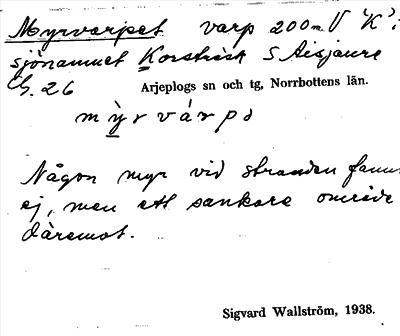 Myrvarpet varp 200 m V "K" i
sjönamnet Korsträsk S Aisjaure
G. 26 Arjeplogs sn och tg, Norrbottens län.
mỳrvárpə
Någon myr vid stranden fanns
ej, men ett sankare område
däremot.
Sigvard Wallström, 1938.